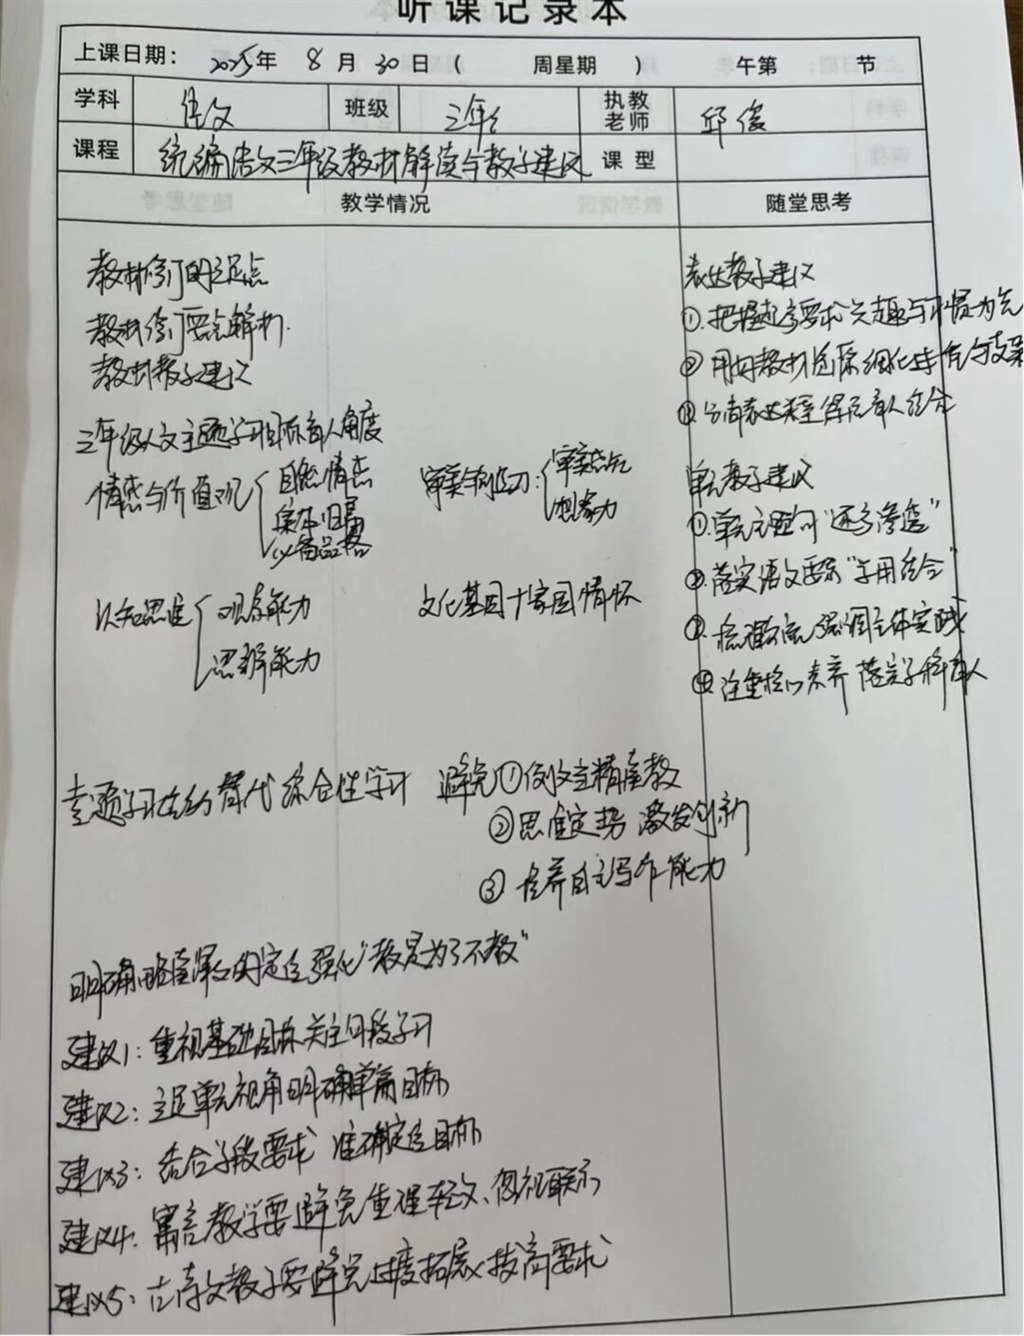 听课记录本
上课日期： 2025年 8月30日（ 周星期 ） 午第 节
学科 语文 班级 三年级 执教老师 邱俊
课程 统编语文三年级教材解读与教学建议 课型
教学情况 随堂思考
教材修订的立足点
教材修订要点解析
教材教学建议
三年级人文主题学习目标育人角度
情感与价值观 自然情态
家本归属
必备品格
审美与创造力：审美感知
想象力
认知思维 观察能力
思辨能力
文化基因十家国情怀
专题学习活动替代综合性学习 避免①依文定精准教
②思维定势 激发创新
③培养自主写作能力
明确略读课文的定位强化“教是为了不教”
建议1：重视基础目标关注阶段学习
建议2：立足单元视角明确单篇目标
建议3：结合学段要求 准确定位目标
建议4：寓言教学要避免重理轻文、忽视联系
建议5：古诗文教学要避免过度拓展、拔高要求
表达教学建议
①把握起步要求兴趣与习惯为先
②用好教材 细化 与支架
③ 表达 育人结合
单元教学建议
①单元主题 “逐步渗透”
②落实语文要素“学用结合”
③ 强调主体实践
④注重核心素养 落实学科育人